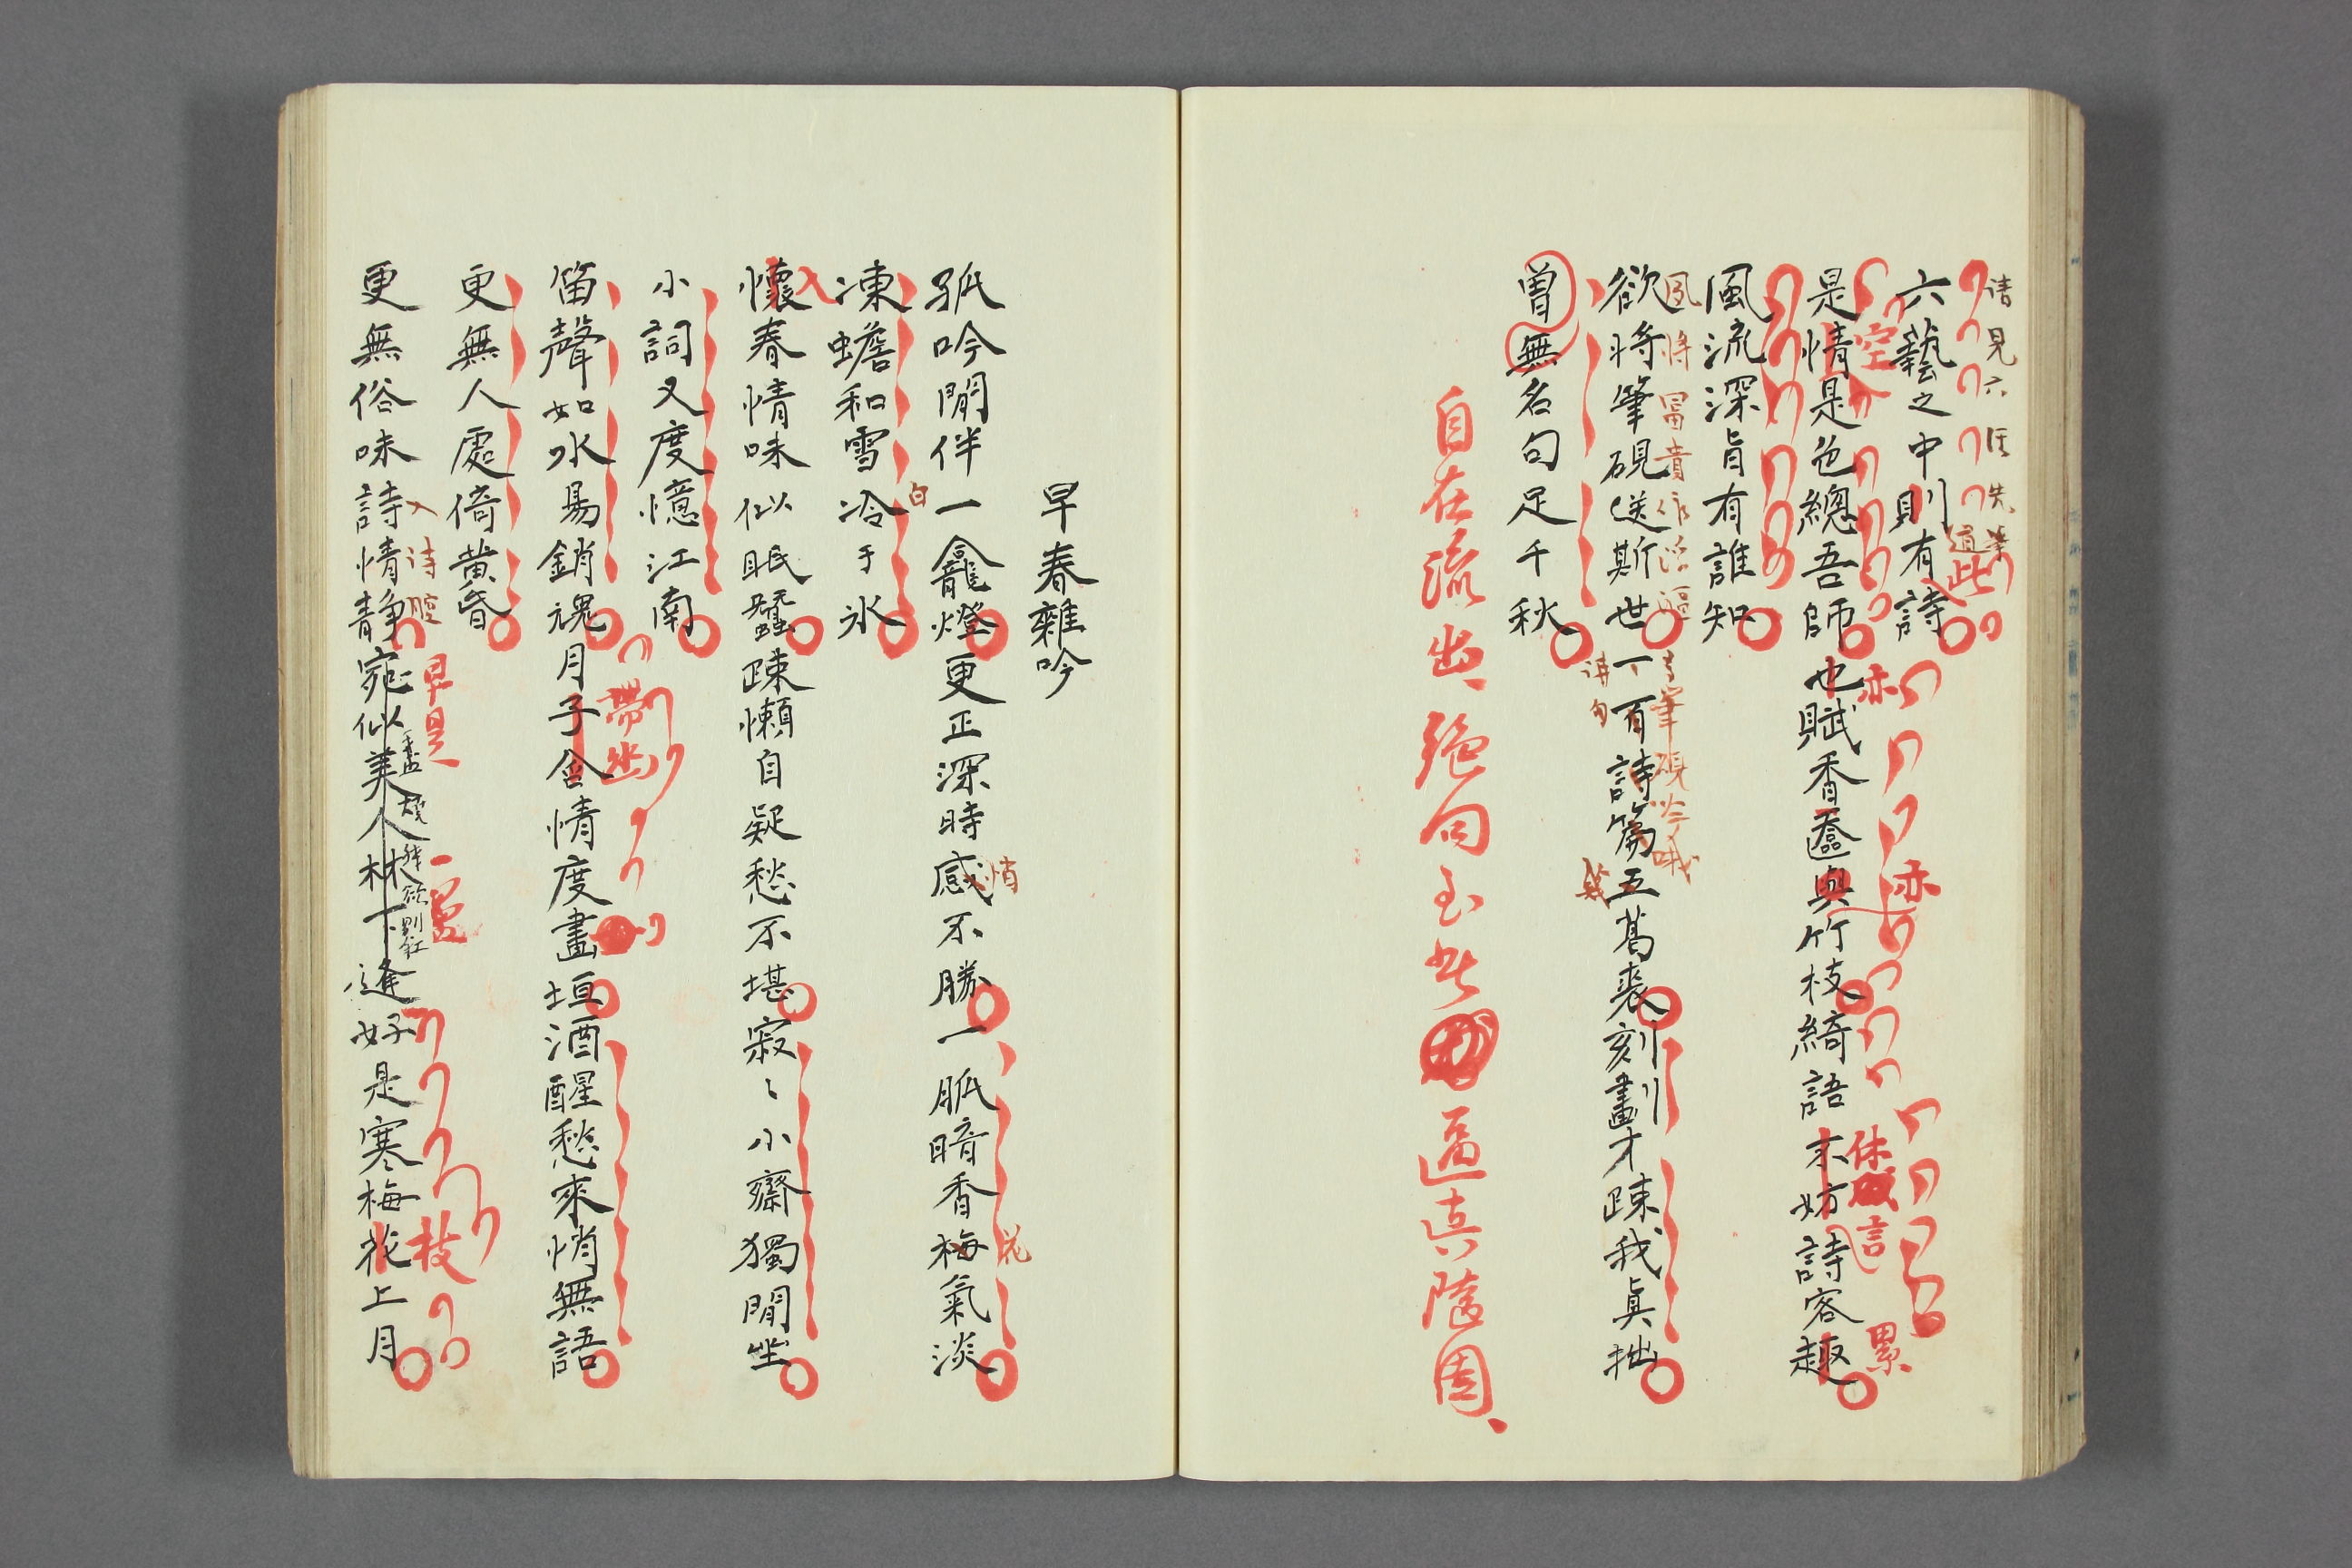 六藝之中則有詩
是情是色總吾師也賦香奩與竹枝綺語不妨詩客趣
風流深旨有誰知
欲將筆硯送斯世一百詩篇五葛裘刻劃才疎我眞拙
曽無名句足千秋
自在流出絶句至此
逼真隨園
亦
亦
休
言
累
早春雜吟
孤吟閒伴一龕燈更正深時感不勝一脈暗香梅氣淡
悄
花
凍蟾和雪冷于氷
白
懷春情味似眠蠶疎懶自疑愁不堪寂〻小齋獨閒坐
小詞又度憶江南
笛聲如水易銷魂月子含情度畫垣酒醒愁來悄無語
帶幽
更無人處倚黄昏
更無俗味詩情静宛似美人林下逢好是寒梅花上月
早是
枝